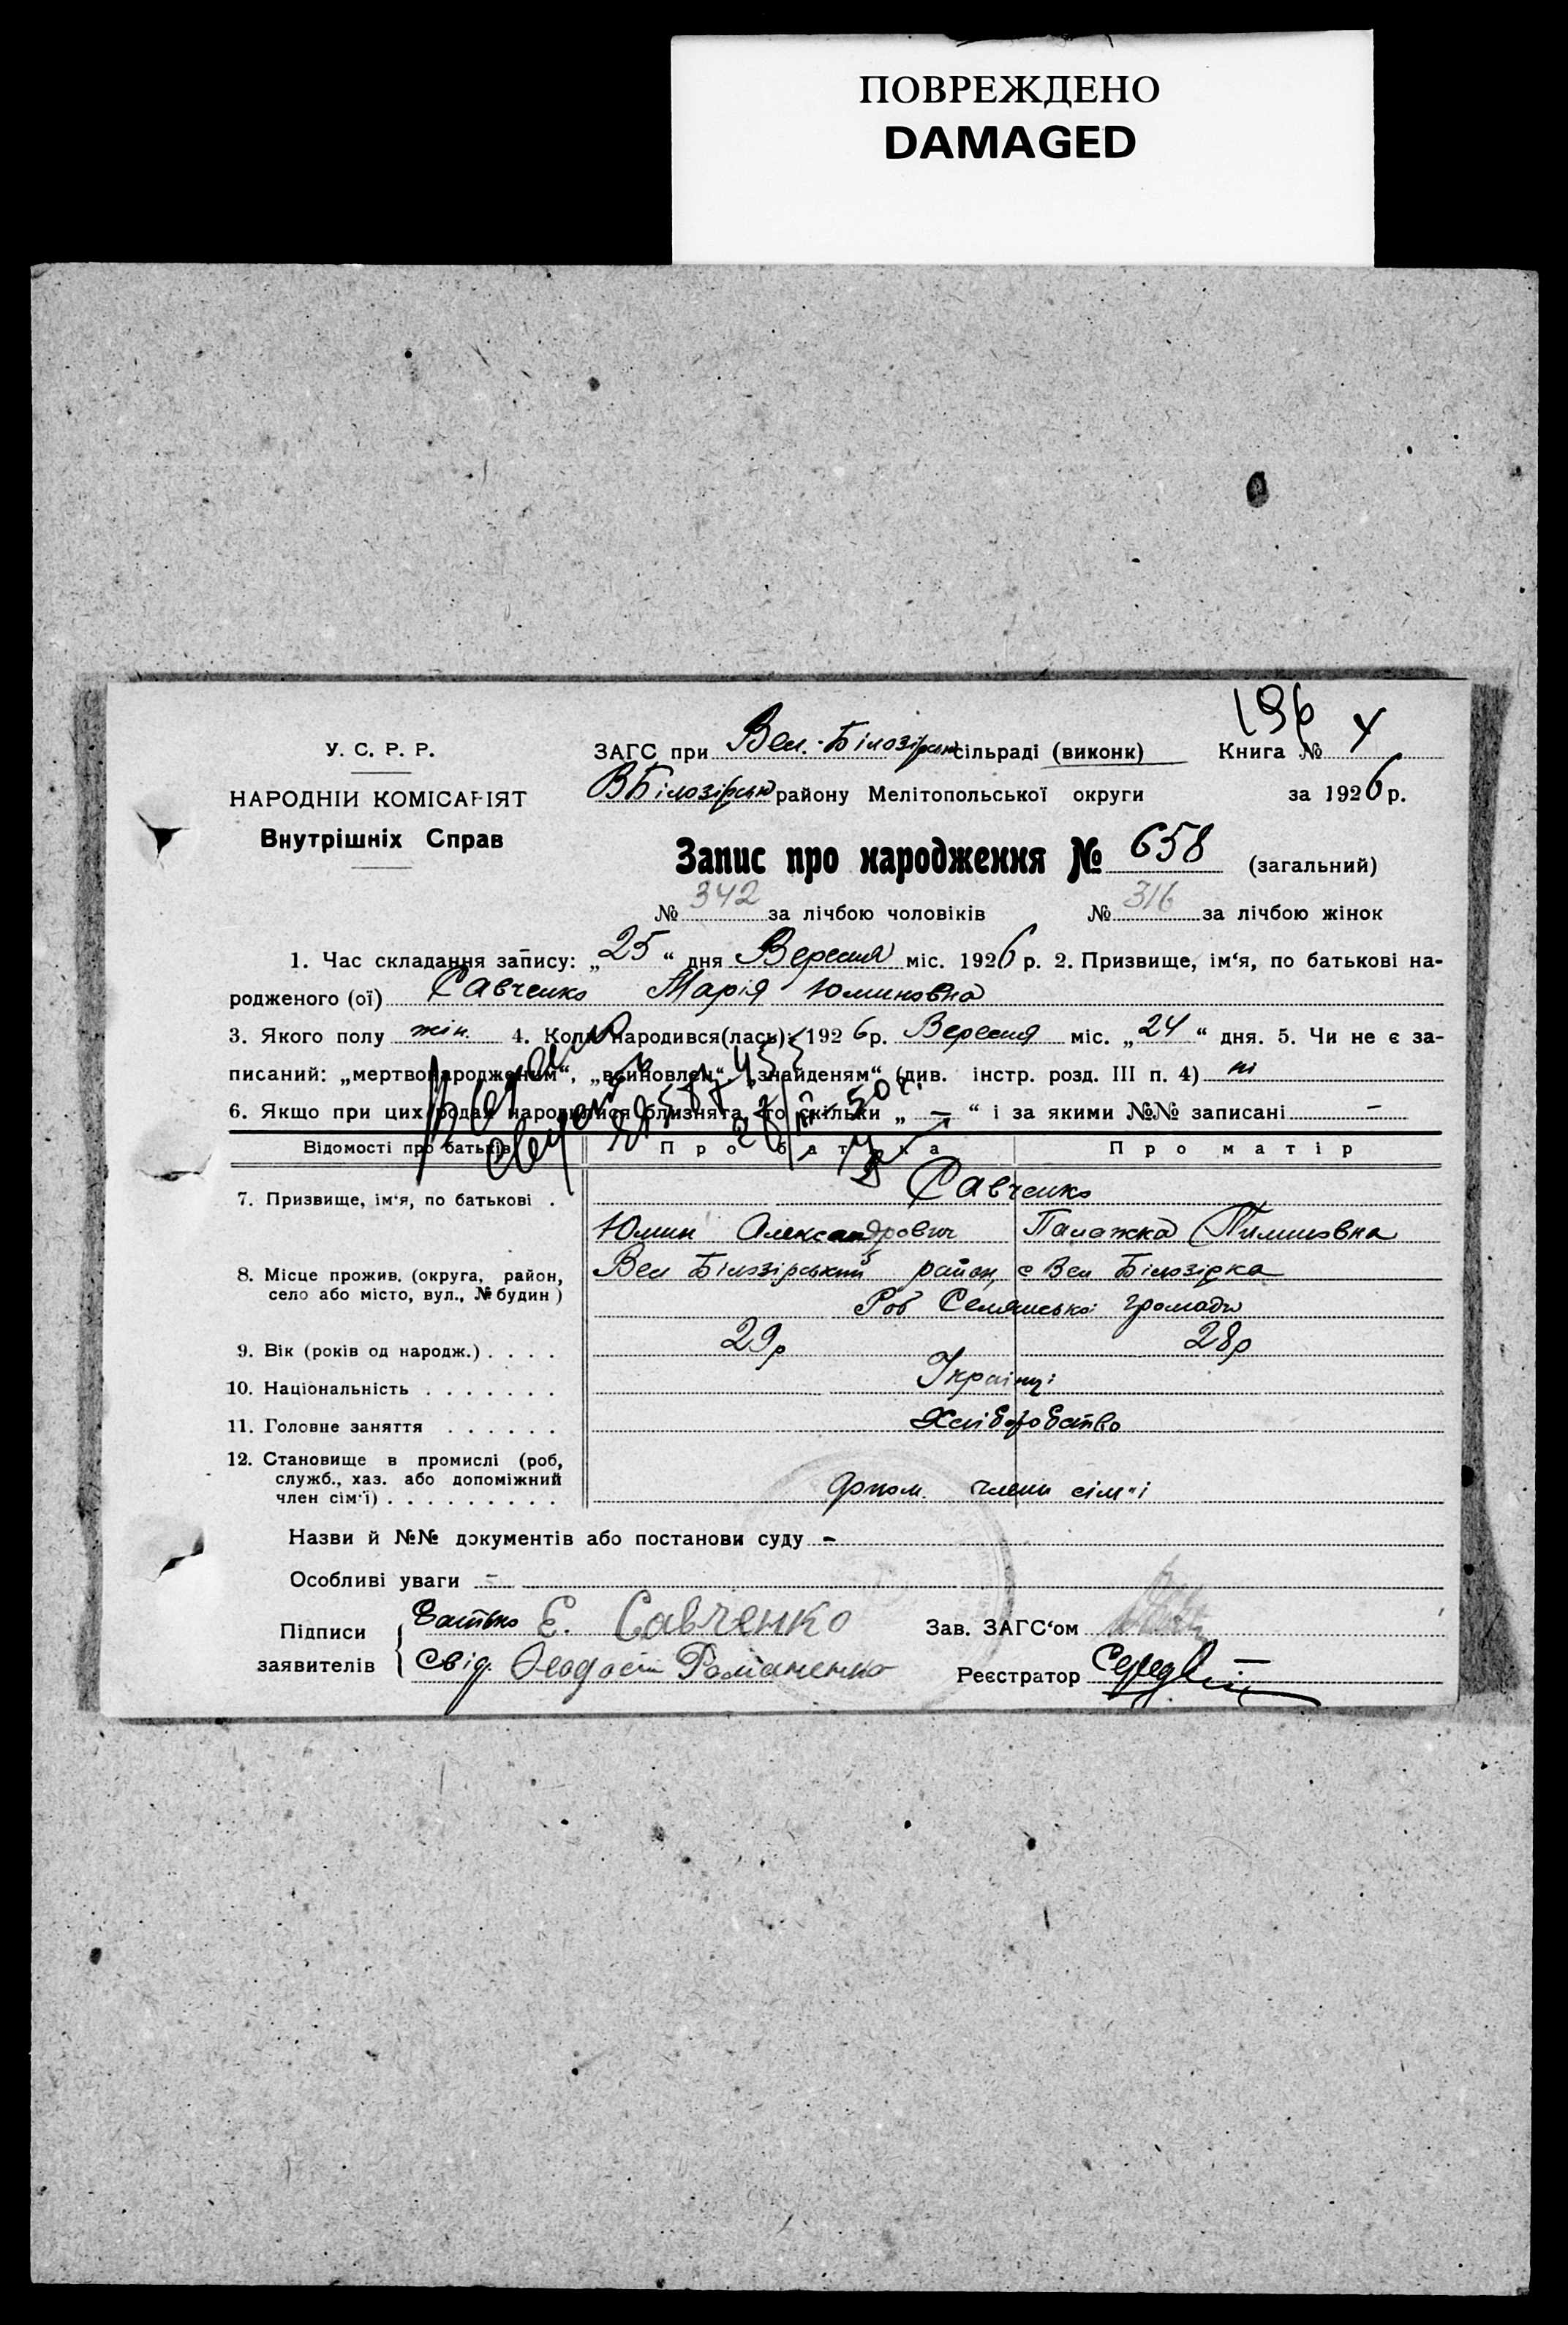 ПОВРЕЖДЕНО
DAMAGED
196
У. С. Р. Р.
НАРОДНІИ КОМІСАРІЯТ
Внутрішніх Справ
ЗАГС при Вел.-Білозірськ сільраді (виконк) Книга № 4
ВБілозірськ району Мелітопольської округи за 1926 р.
Запис про народження № 658 (загальний)
№ 342 за лічбою чоловіків № 316 за лічбою жінок
1. Час складання запису: „25“ дня Вересня міс. 1926 р. 2. Призвище, ім‘я, по батькові на-
родженого (ої) Савченко Марія Юминовна
3. Якого полу жін. 4. Коли народився(лась): 1926р. Вересня міс. „24“ дня. 5. Чи не є за-
писаний: „мертвонародженим“, „всиновлен“, „знайденям“ (див. інстр. розд. III п. 4) ні
6. Якщо при цих родах народилися близнята, то скільки „ — “ і за якими №№ записані –
Відомості про батьків Про батька Про матір
7. Призвище, ім‘я, по батькові . Савченко
Юмин Александрович Палажка Пилиповна
8. Місце прожив. (округа, район, село або місто, вул., № будин) Вел Білозірський район, с Вел Білозірка
Роб Селянської громади
9. Вік (років од народж.) . . . . 29р 28р
10. Національність . . . . . . . Українці
11. Головне заняття . . . . . . Хліборобство
12. Становище в промислі (роб, служб., хаз. або допоміжний член сім‘ї) . . . . . . . . . допом. члени сім"і
Назви й №№ документів або постанови суду –
Особливі уваги –
Підписи заявителів { батько Е. Савченко Зав. ЗАГС‘ом
свід. Феодосій Романенко Реєстратор